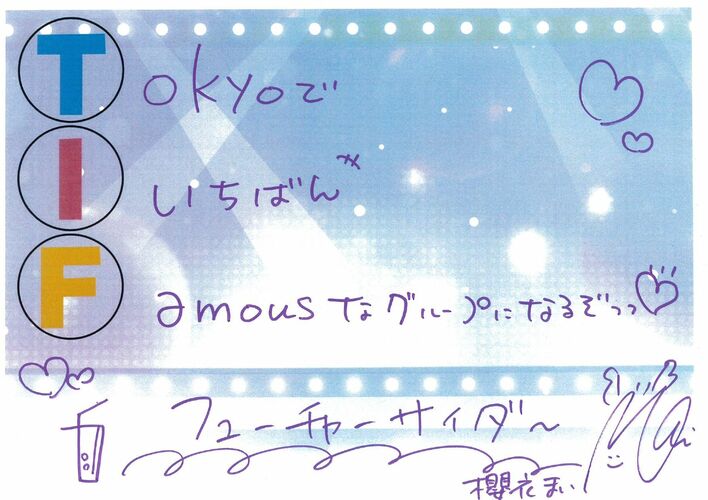 Tokyoで
いちばん
Famousなグループになるぞっっ
フューチャーサイダー
櫻衣まい
Mai